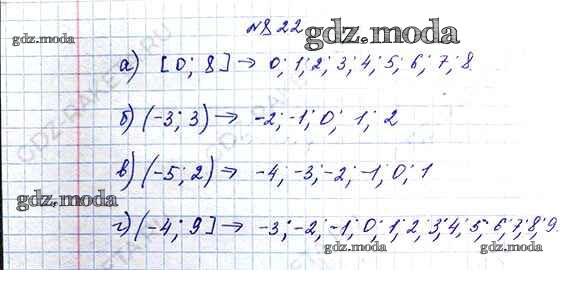 №822
gdz.moda
gdz.moda
а) [0; 8] → 0; 1; 2; 3; 4; 5; 6; 7; 8.
б) (-3; 3) → -2; -1; 0; 1; 2
в) (-5; 2) → -4; -3; -2; -1; 0; 1
gdz.moda
gdz.moda
г) (-4; 9] → -3; -2; -1; 0; 1; 2; 3; 4; 5; 6; 7; 8; 9.
gdz.moda
gdz.moda